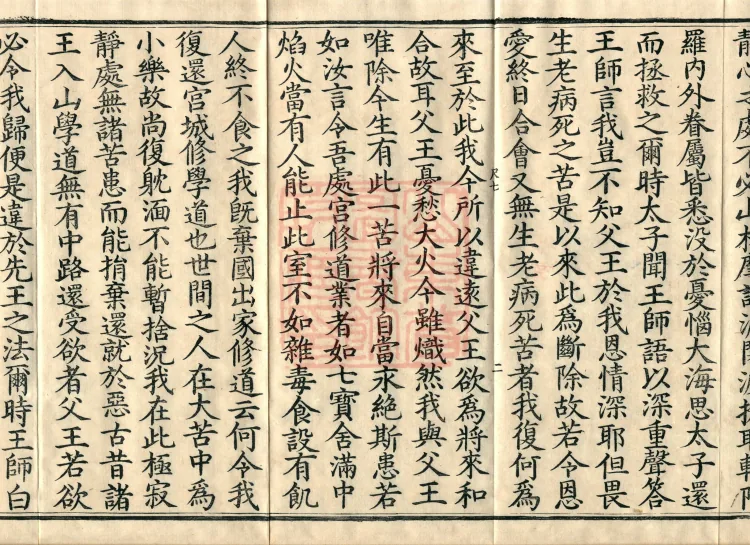 羅內外眷屬皆悉没於憂惱大海思太子還
而拯救之爾時太子聞王師語以深重聲答
王師言我豈不知父王於我恩情深耶但畏
生老病死之苦是以來此為斷除故若令恩
愛終日合會又無生老病死苦者我復何為
尺七 二
來至於此我今所以違遠父王欲為將來和
合故耳父王憂愁大火今雖熾然我與父王
唯除今生有此一苦將來自當永絕斯患若
如汝言令吾處宮修道業者如七寶舍滿中
焰火當有人能止此室不如雜毒食設有飢
人終不食之我旣棄國出家修道云何令我
復還宮城修學道也世間之人在大苦中為
小樂故尚復躭湎不能暫捨況我在此極寂
靜處無諸苦患而能捐棄還就於惡古昔諸
王入山學道無有中路還受欲者父王若欲
必令我歸便是違於先王之法爾時王師白